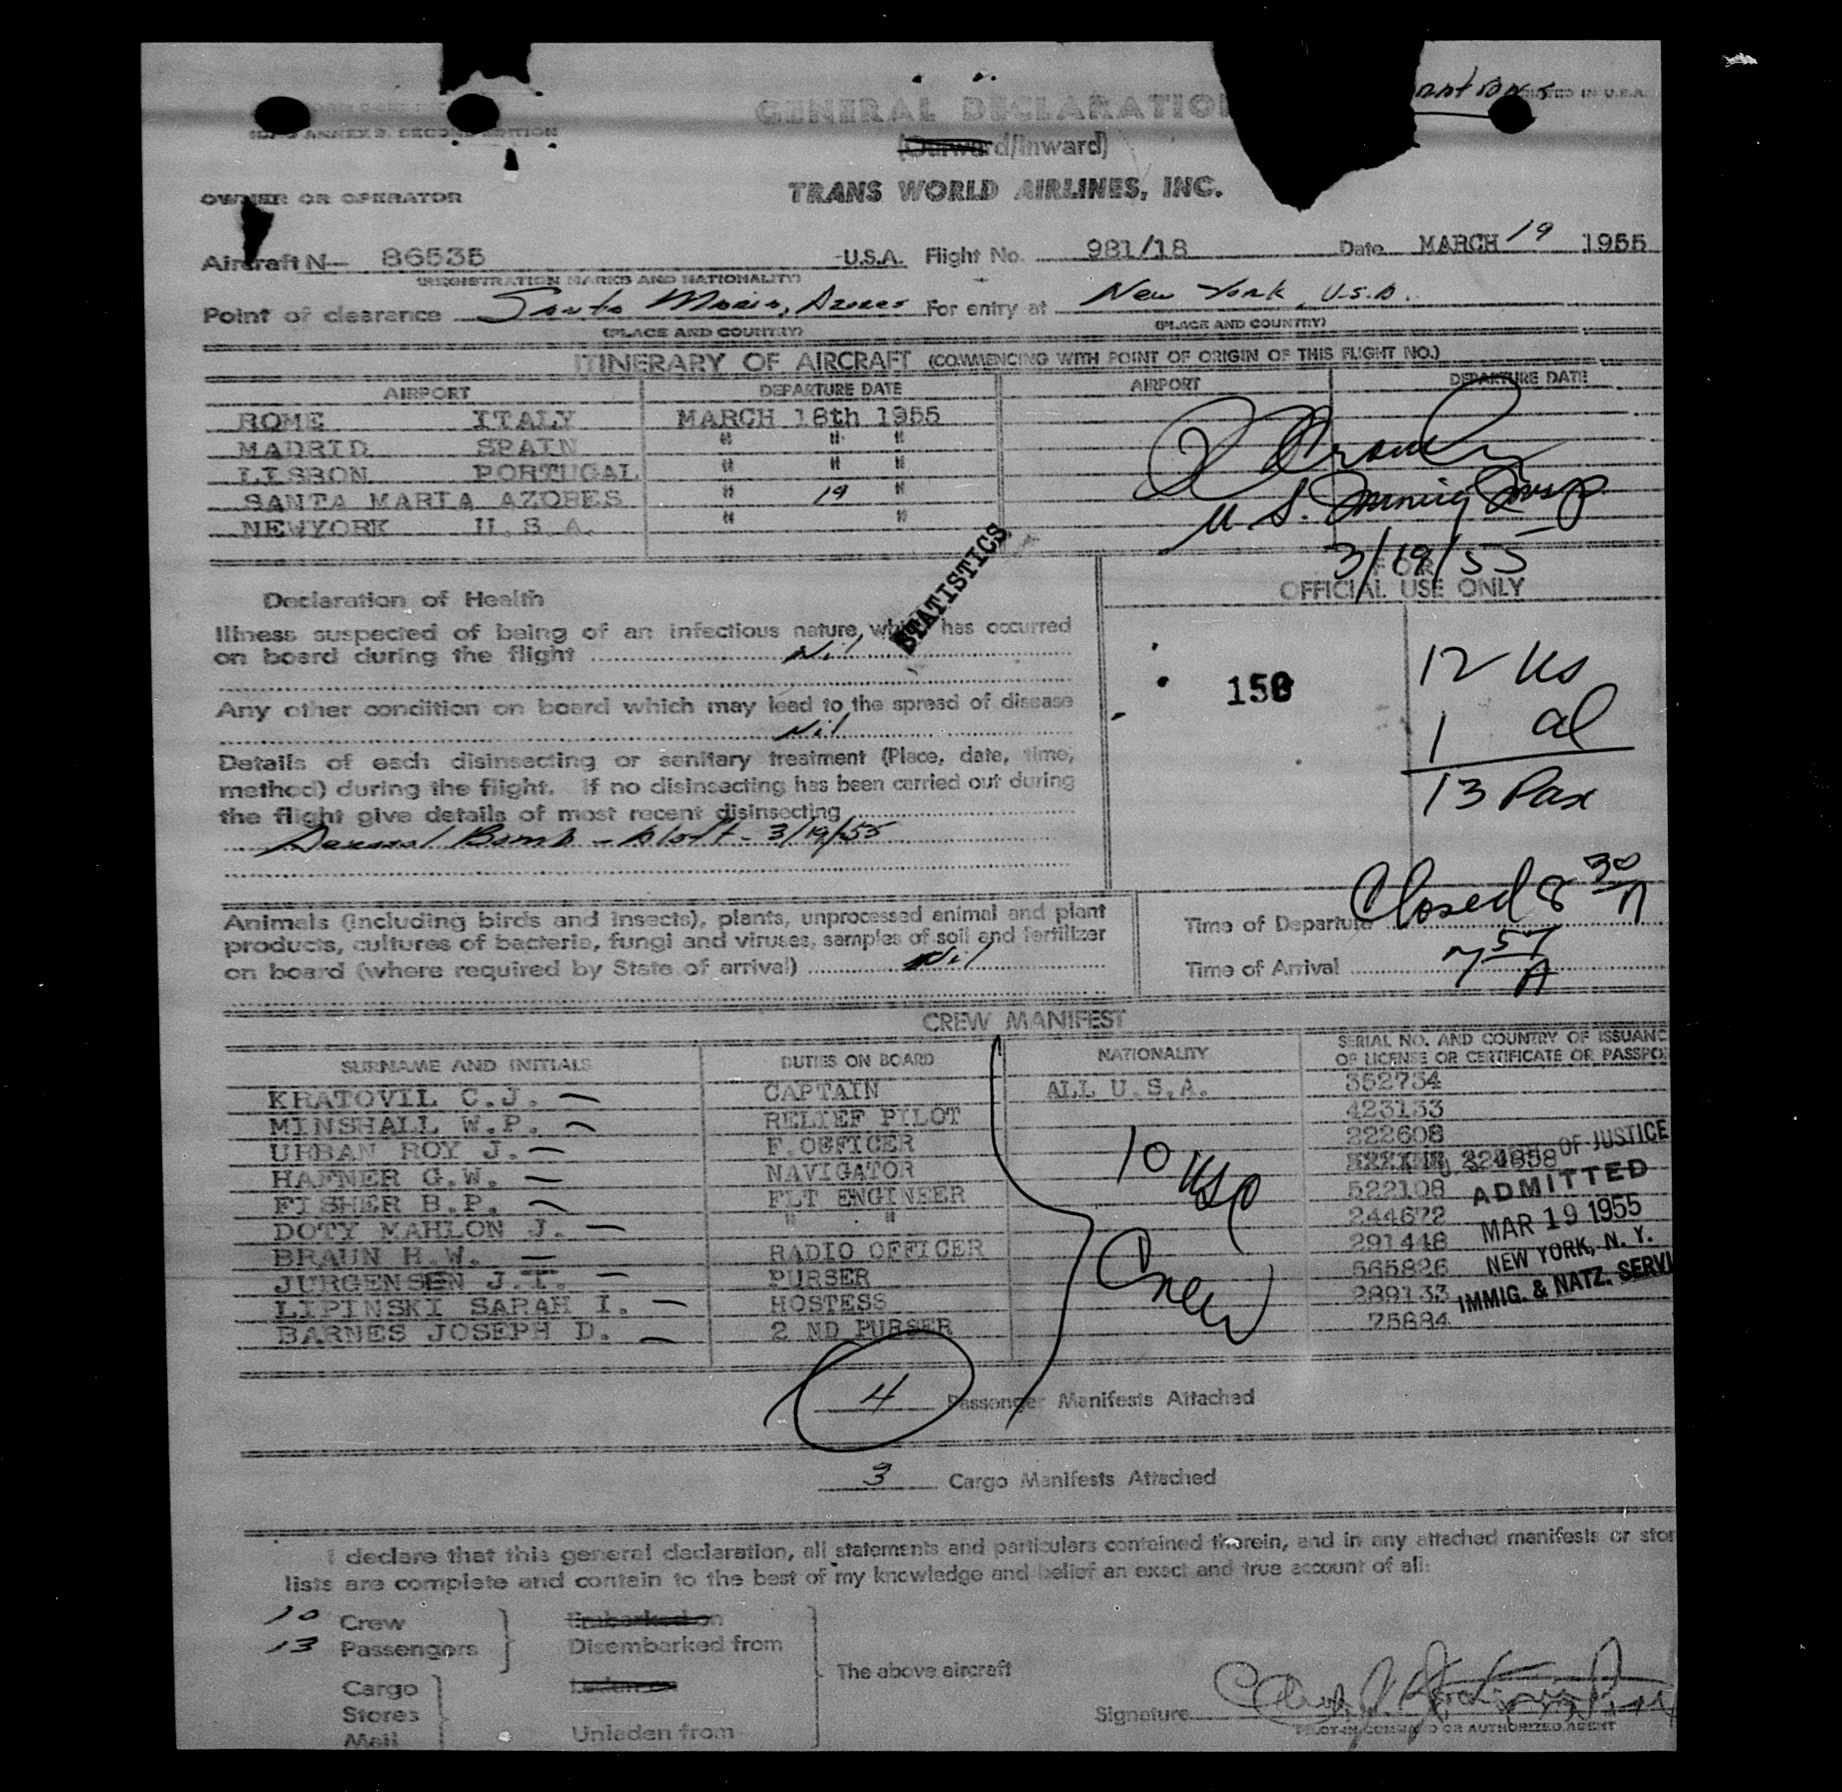 GENERAL DECLARATION
ICAO ANNEX 9, SECOND EDITION
(Outward/Inward)
OWNER OR OPERATOR
TRANS WORLD AIRLINES, INC.
Aircraft N— 86535 U.S.A. Flight No. 981/18 Date MARCH 19 1955
(REGISTRATION MARKS AND NATIONALITY)
Point of clearance Santa Maria, Azores For entry at New York, U.S.A.
(PLACE AND COUNTRY) (PLACE AND COUNTRY)
ITINERARY OF AIRCRAFT (COMMENCING WITH POINT OF ORIGIN OF THIS FLIGHT NO.)
AIRPORT DEPARTURE DATE AIRPORT DEPARTURE DATE
ROME ITALY MARCH 18th 1955
MADRID SPAIN " " "
LISBON PORTUGAL " " "
SANTA MARIA AZORES " 19 "
NEWYORK U.S.A. " "
U.S. Immig Insp
3/19/55
STATISTICS
FOR
OFFICIAL USE ONLY
Declaration of Health
Illness suspected of being of an infectious nature, which has occurred
on board during the flight Nil
Any other condition on board which may lead to the spread of disease
Nil
Details of each disinsecting or sanitary treatment (Place, date, time,
method) during the flight. If no disinsecting has been carried out during
the flight give details of most recent disinsecting
Aerosol Bomb - Aloft - 3/19/55
12 us
1 al
13 Pax
Animals (including birds and insects), plants, unprocessed animal and plant
products, cultures of bacteria, fungi and viruses, samples of soil and fertilizer
on board (where required by State of arrival) Nil
Closed 8 30 A
Time of Departure
Time of Arrival 7 57 A
CREW MANIFEST
SURNAME AND INITIALS DUTIES ON BOARD NATIONALITY SERIAL NO. AND COUNTRY OF ISSUANC
OF LICENSE OR CERTIFICATE OR PASSPO
KRATOVIL C.J. — CAPTAIN ALL U.S.A. 352734
MINSHALL W.P. — RELIEF PILOT 423133
URBAN ROY J. — F.OFFICER 222608
HAFNER G.W. — NAVIGATOR
FISHER B.P. — FLT ENGINEER 522108
DOTY MAHLON J. — " " 244672
BRAUN H.W. — RADIO OFFICER 291448
JURGENSEN J.T. — PURSER 565826
LIPINSKI SARAH I. — HOSTESS 289133
BARNES JOSEPH D. — 2 ND PURSER 75884
10 USC
Crew
OF JUSTICE
ADMITTED
MAR 19 1955
NEW YORK, N. Y.
IMMIG. & NATZ. SERVI
4 Passenger Manifests Attached
3 Cargo Manifests Attached
I declare that this general declaration, all statements and particulars contained therein, and in any attached manifests or stor
lists are complete and contain to the best of my knowledge and belief an exact and true account of all:
10 Crew Embarked on
13 Passengers Disembarked from
The above aircraft
Cargo Laden on
Stores
Mail Unladen from
Signature
PILOT-IN-COMMAND OR AUTHORIZED AGENT